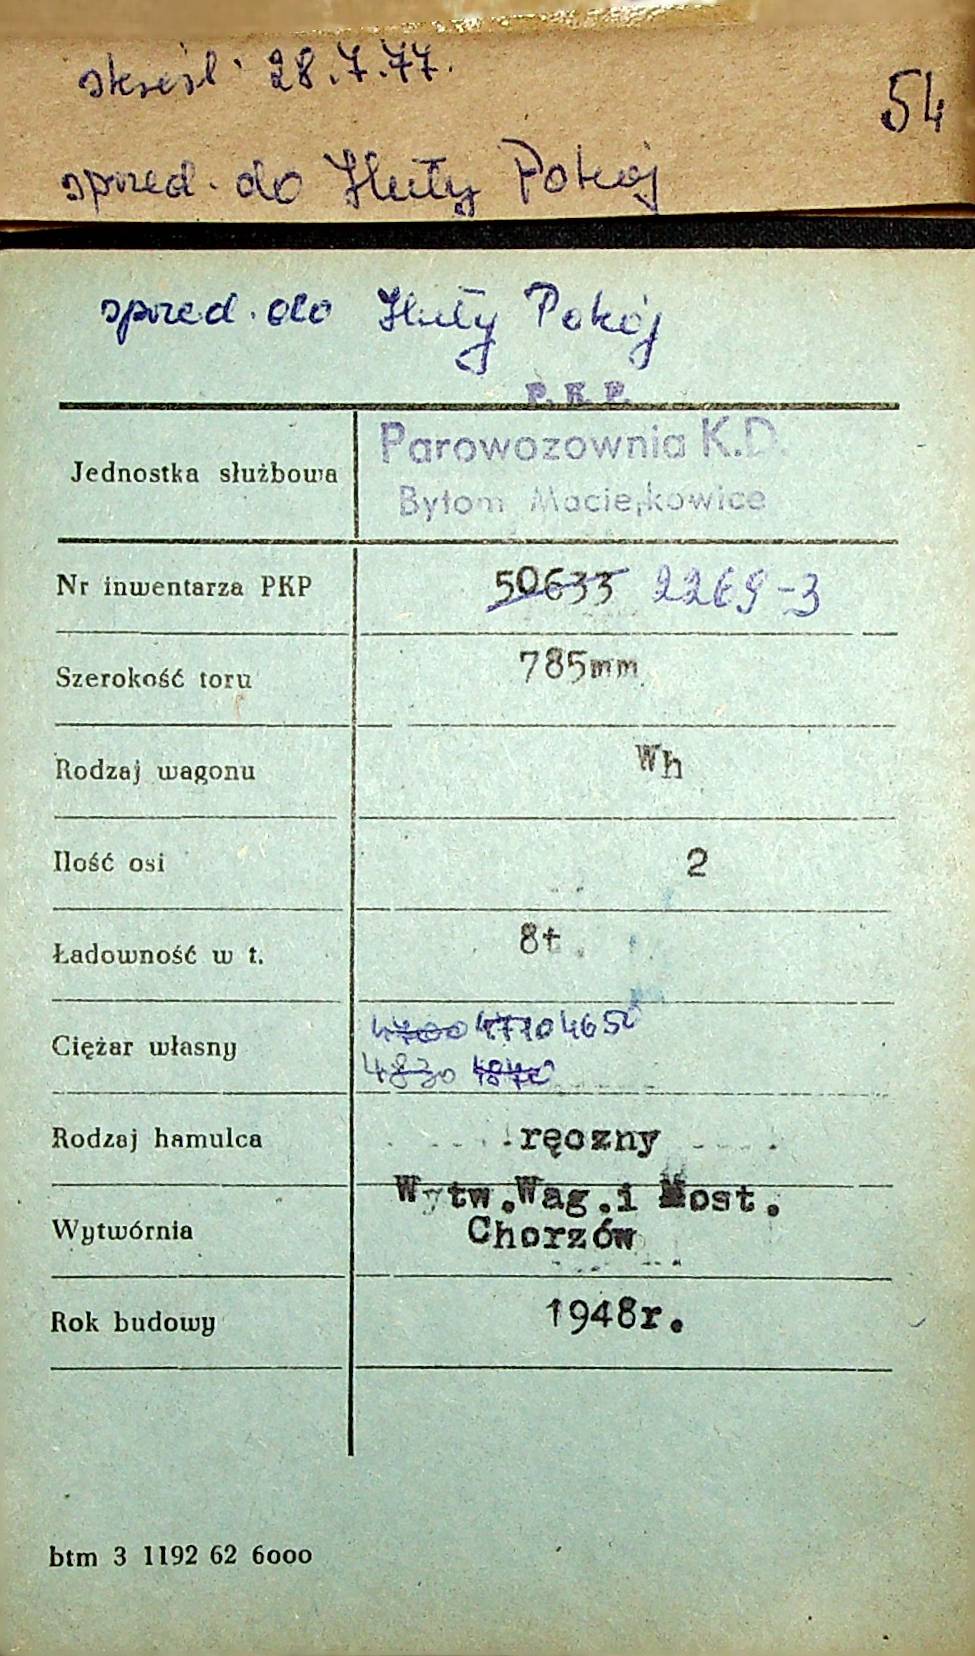 skreśl. 28.7.77.
54
sprzed. do Huty Pokój
sprzed. do Huty Pokój
P. K. P.
Jednostka służbowa Parowozownia K.D.
Bytom Maciejkowice
Nr inwentarza PKP 50633 2269-3
Szerokość toru 785mm
Rodzaj wagonu Wh
Ilość osi 2
Ładowność w t. 8t.
Ciężar własny 4700 4710 4650
4830
Rodzaj hamulca ręczny
Wytwórnia Wytw.Wag.i Most.
Chorzów
Rok budowy 1948r.
btm 3 1192 62 6000